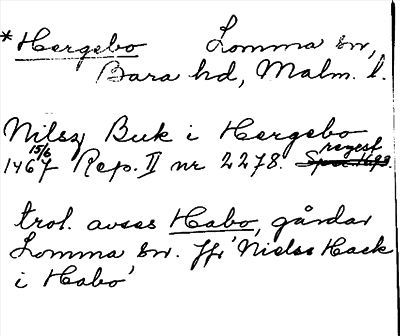 *Hergebo Lomma sn,
Bara hd, Malm. l.
Nilsz Buk i Hergebo
15/6 1467 Rep. II nr 2278. regest
trol. avses Habo, gårdar
Lomma sn. Jfr 'Nielss Hack
i Habo'